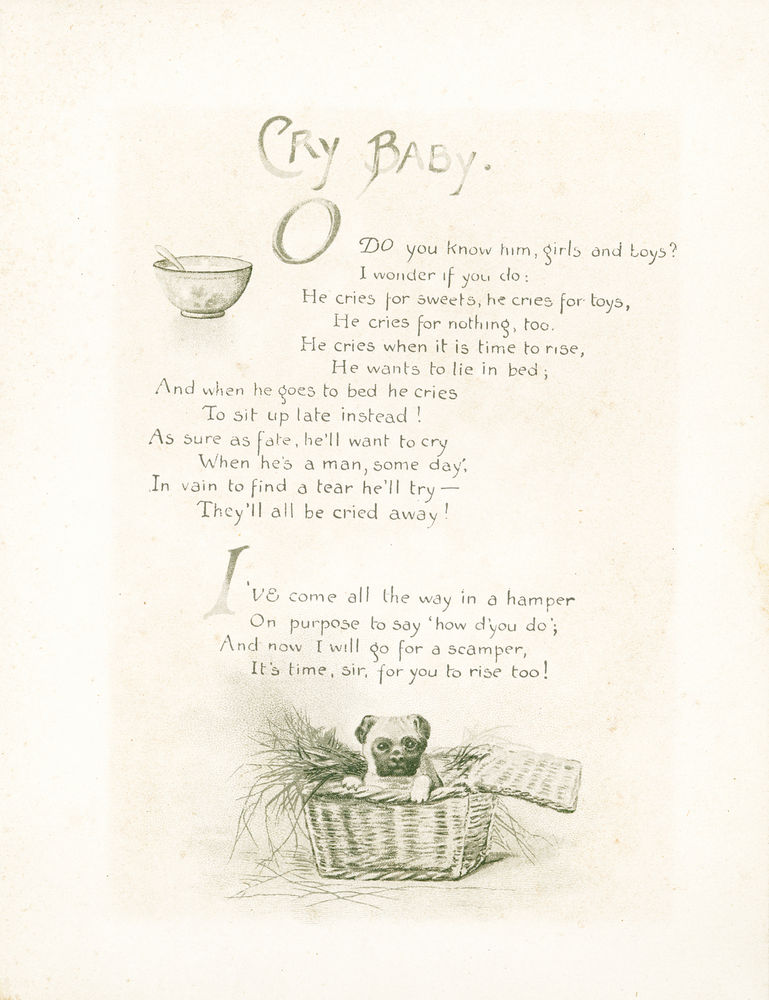 CRY BABY.
O DO you know him, girls and boys?
I wonder if you do:
He cries for sweets, he cries for toys,
He cries for nothing, too.
He cries when it is time to rise,
He wants to lie in bed;
And when he goes to bed he cries
To sit up late instead!
As sure as fate, he'll want to cry
When he's a man, some day;
In vain to find a tear he'll try—
They'll all be cried away!
I'VE come all the way in a hamper
On purpose to say 'how d'you do';
And now I will go for a scamper,
It's time, sir, for you to rise too!